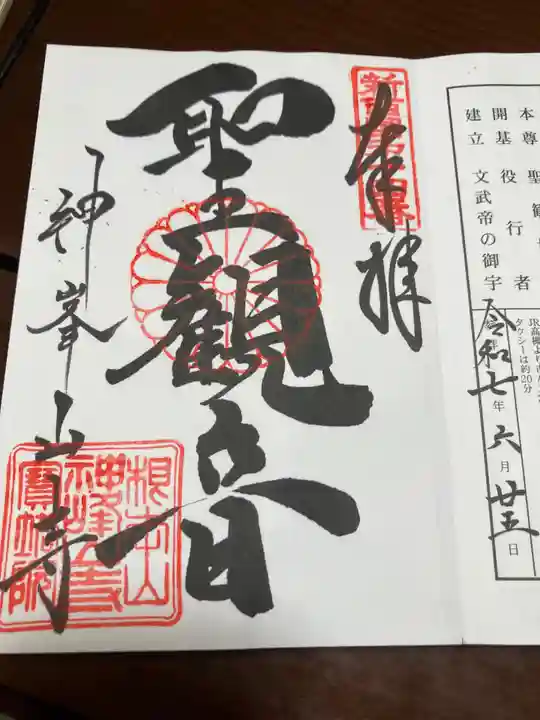 本尊 聖観
開基 役行者
建立 文武帝の御宇
タクシーは約20分
令和七年六月廿五日
奉拝
聖観音
神峯山寺
根本山
神峰山寺
寳塔院